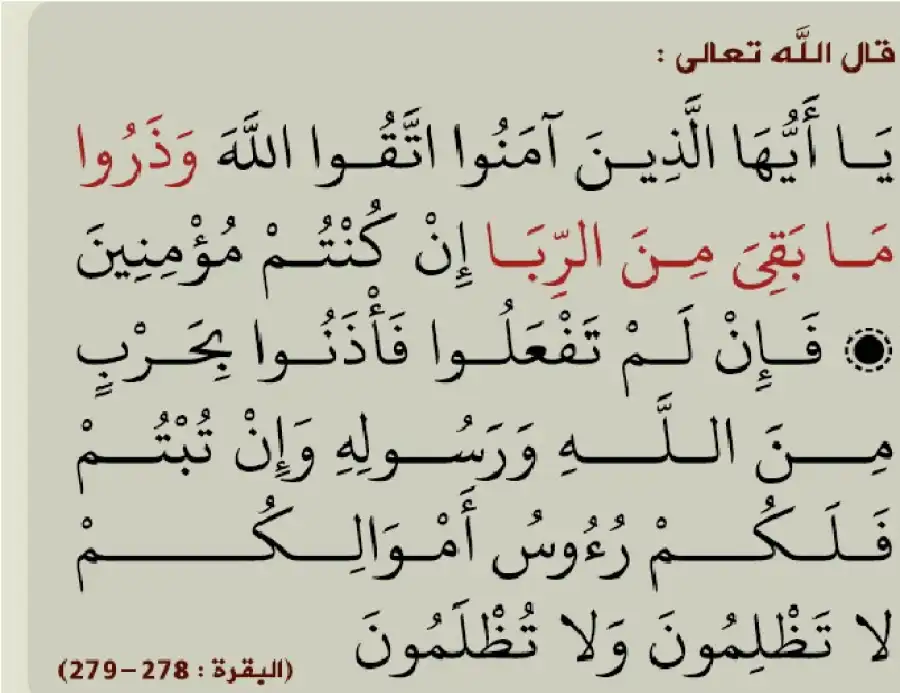 قال الله تعالى :
يَـا أَيُّهَا الَّذِيـنَ آمَنُوا اتَّقُـوا اللَّهَ وَذَرُوا
مَـا بَقِيَ مِـنَ الرِّبَـا إِنْ كُنْتُـمْ مُؤْمِنِينَ
فَـإِنْ لَـمْ تَفْعَلُـوا فَأْذَنُـوا بِحَـرْبٍ
مِـنَ اللَّـهِ وَرَسُـولِهِ وَإِنْ تُبْتُـمْ
فَلَكُـمْ رُءُوسُ أَمْـوَالِكُـمْ
لا تَظْلِمُونَ وَلا تُظْلَمُونَ
(البقرة : 278-279)